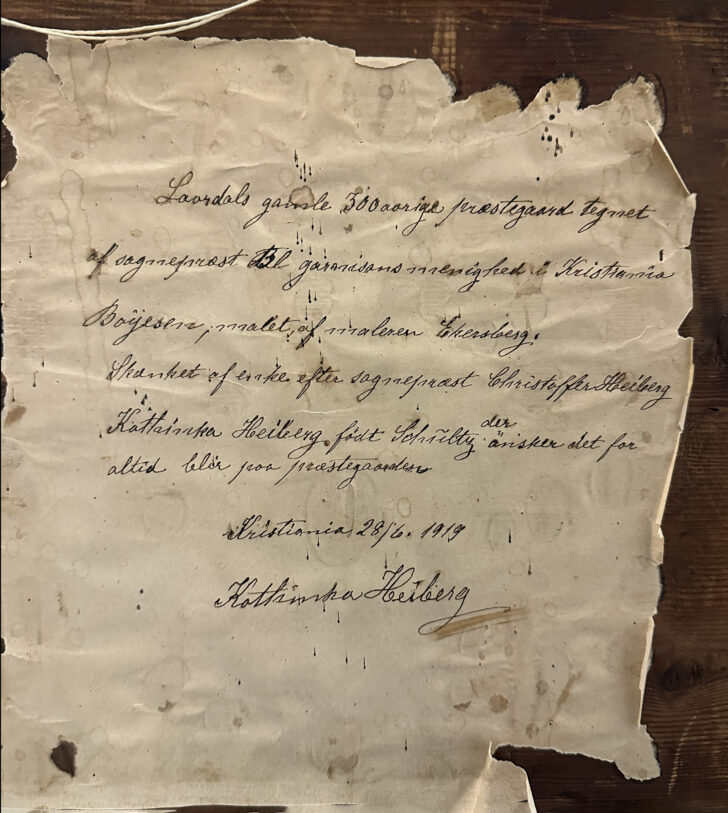 Laardals gamle 300aarige præstegaard tegnet
af sognepræst til garnisonsmenighed i Kristiania
Boÿesen, malet af maleren Ekersberg.
Skænket af enke efter sognepræst Christoffer Heiberg
Kathinka Heiberg født Schültz der ønsker det for
altid blir paa præstegaarden
Kristiania 28/6. 1919
Kathinka Heiberg